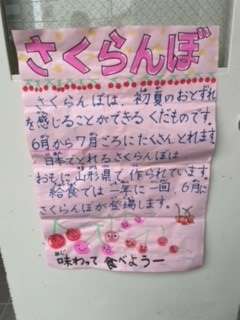 さくらんぼ
さくらんぼは、初夏のおとずれ
を感じることができるくだものです。
6月から7月ごろにたくさんとれます。
日本でとれるさくらんぼは
おもに山形県で作られています。
給食では一年に一回、6月に
さくらんぼが登場します。
味わって食べようー